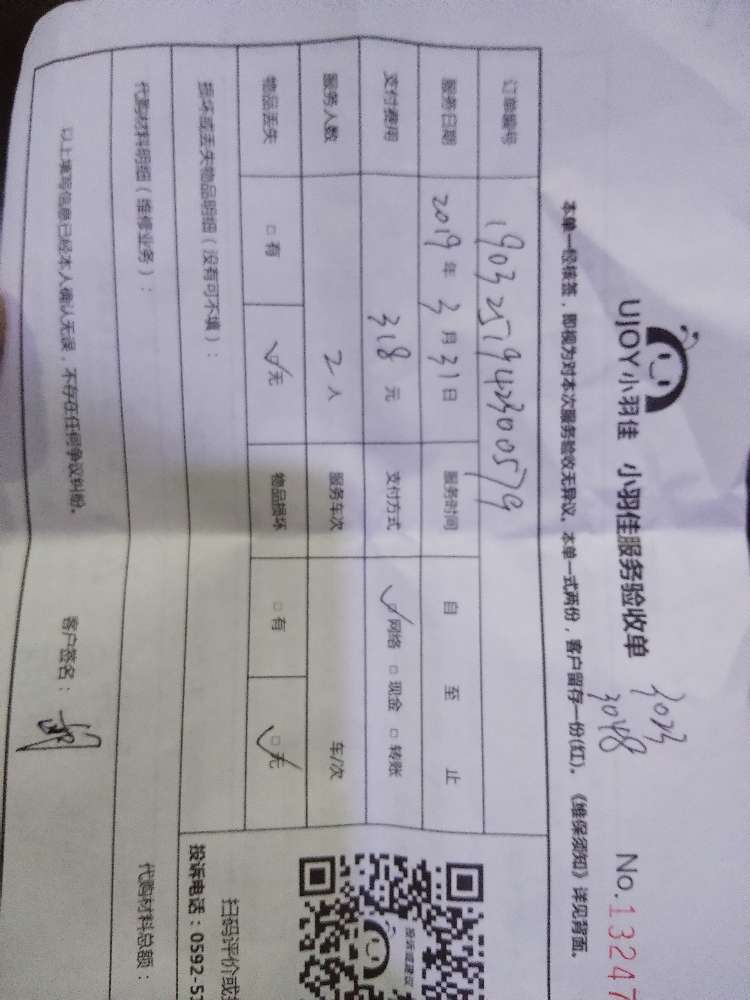 UJOY小羽佳 小羽佳服务验收单 No.13247
3023
3048
本单一经核签，即视为对本次服务验收无异议。本单一式两份，客户留存一份(红)。《维保须知》详见背面。
订单编号 1903251942300579
服务日期 2019年3月31日 服务时间 自 至 止
支付费用 318元 支付方式 ☑网络 □现金 □转账
服务人数 2人 服务车次 车/次
物品丢失 □有 ☑无 物品损坏 □有 ☑无
损坏或丢失物品明细（没有可不填）：
投诉或建议
扫码评价或
投诉电话：0592-5
代购材料明细（维修业务）： 代购材料总额：
以上填写信息已经本人确认无误，不存在任何争议纠纷。 客户签名：